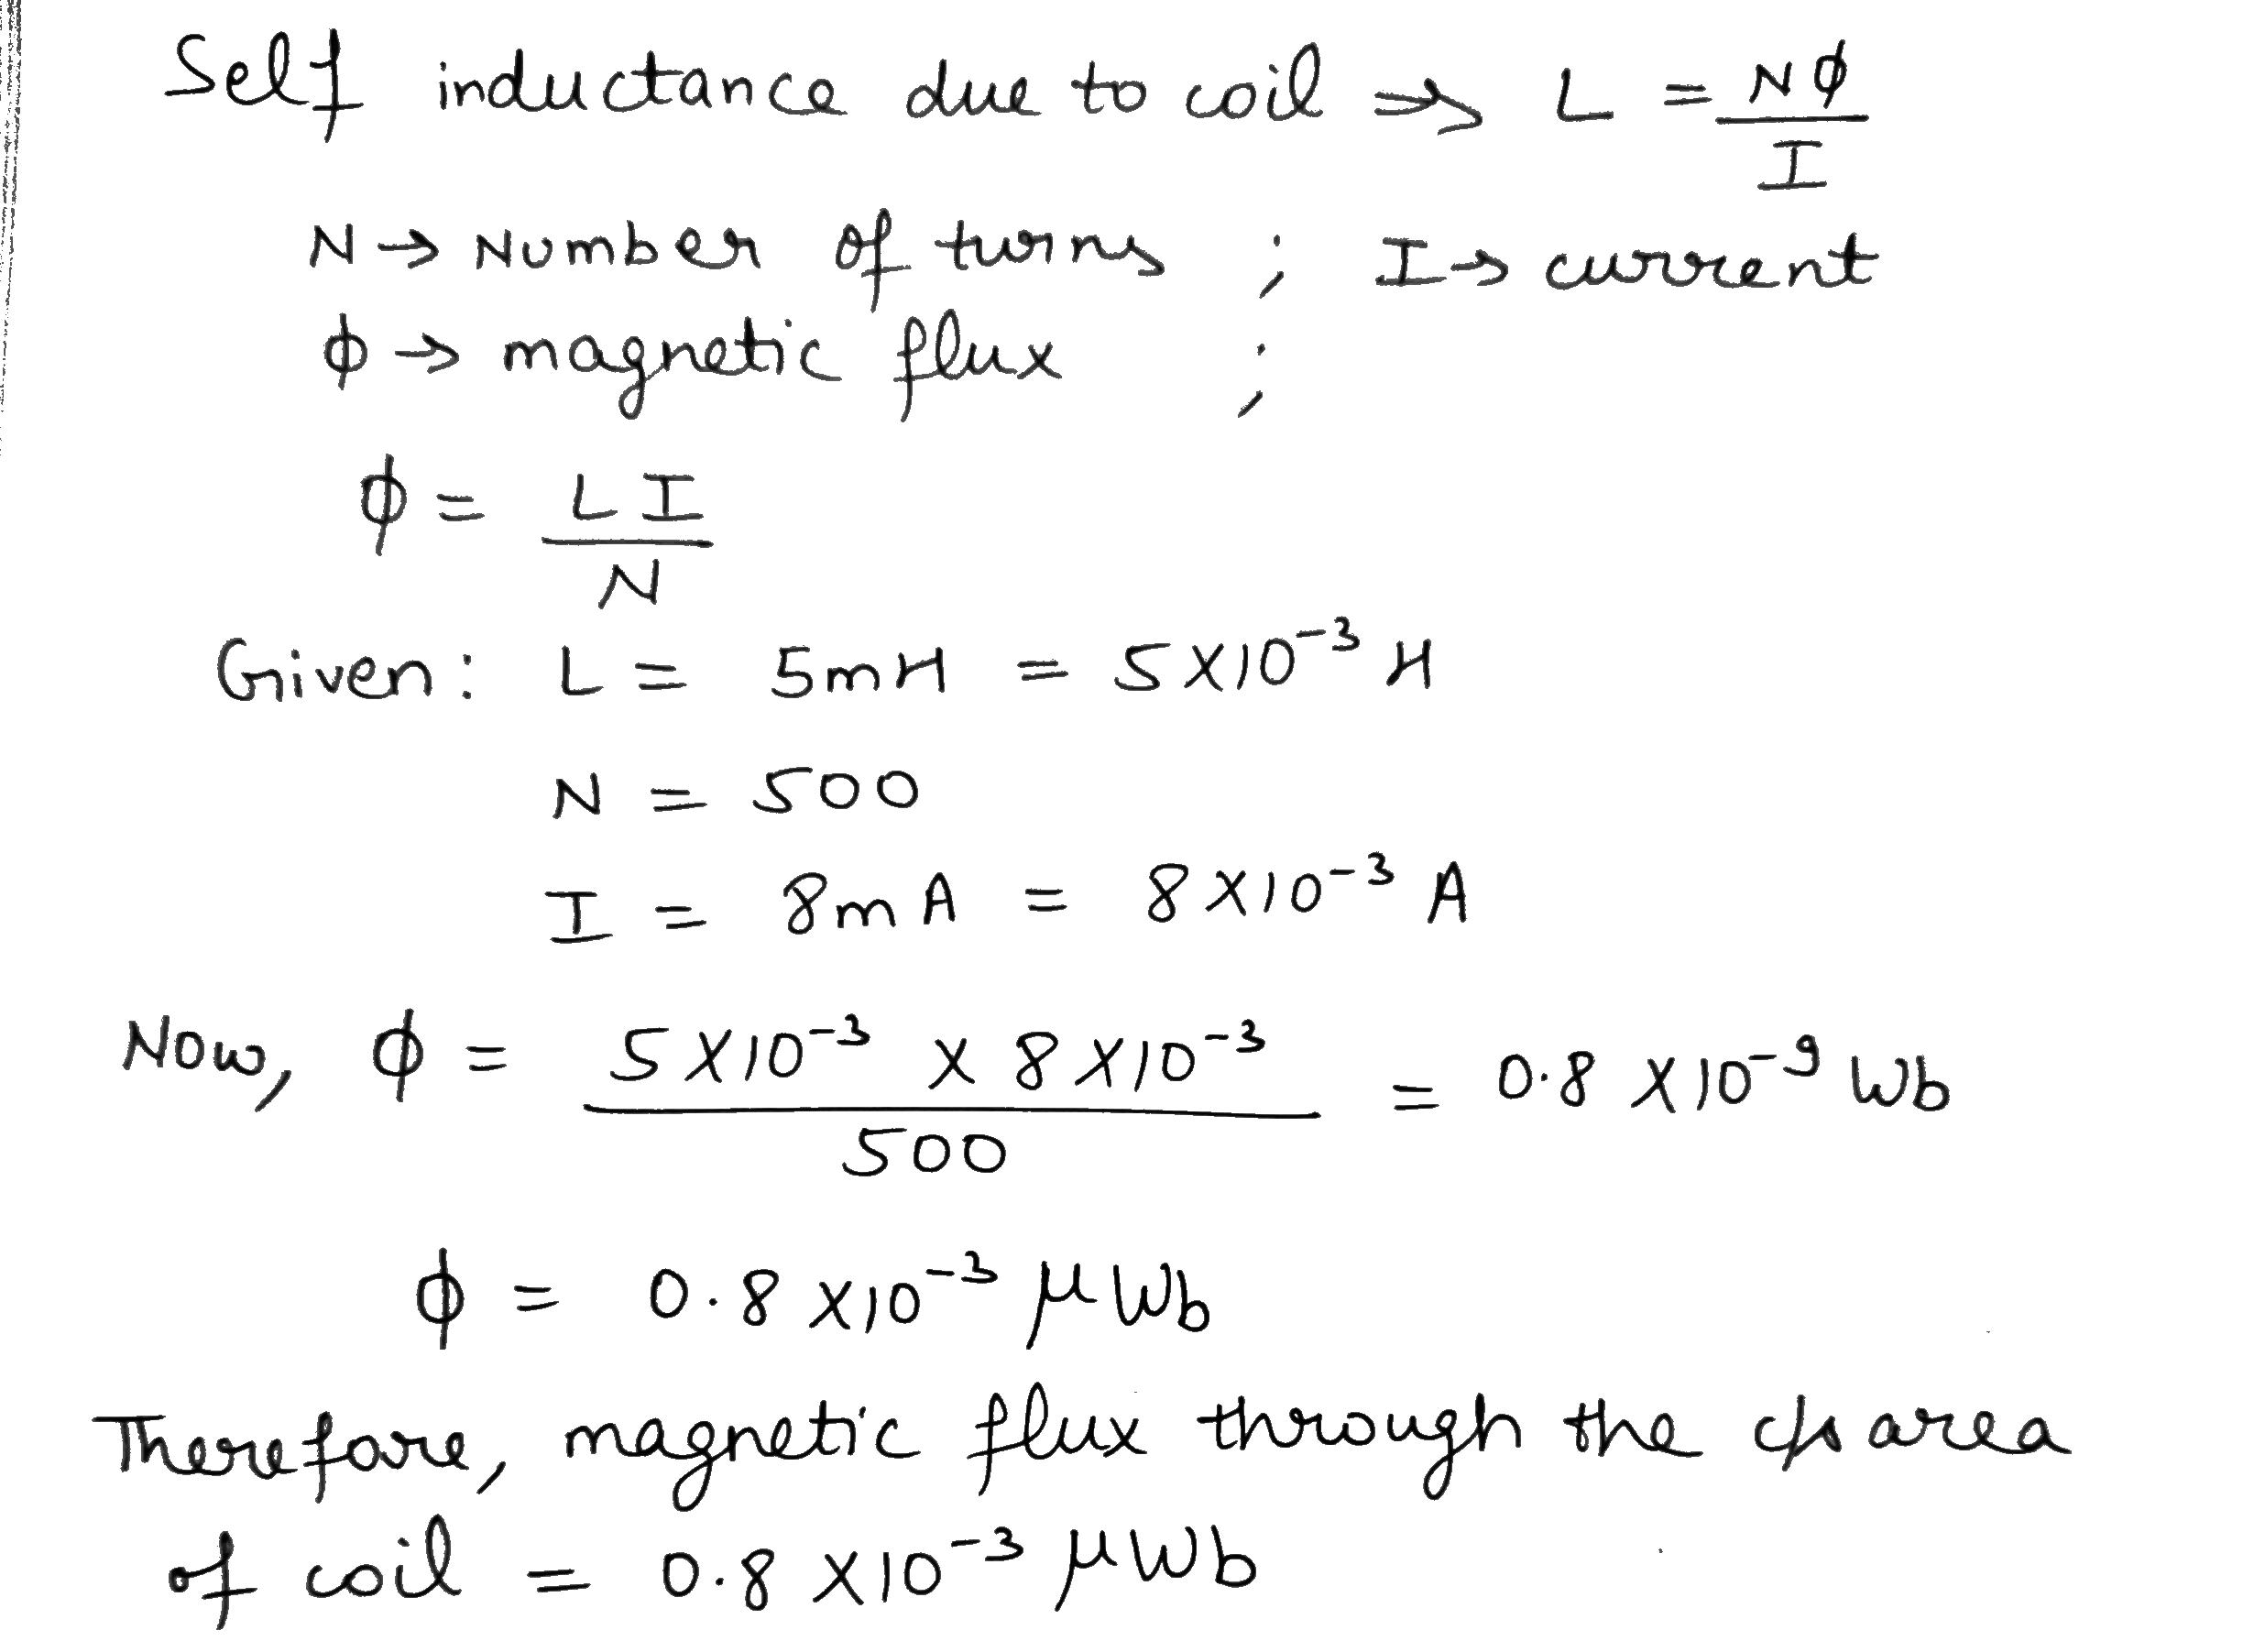 Self inductance due to coil ⇒ L = NΦ/I
N → Number of turns ; I → current
ϕ → magnetic flux ;
ϕ = LI/N
Given: L = 5mH = 5X10⁻³ H
N = 500
I = 8mA = 8X10⁻³ A
Now, ϕ = 5X10⁻³ X 8X10⁻³/500 = 0.8 X10⁻⁹ Wb
ϕ = 0.8 X10⁻³ μWb
Therefore, magnetic flux through the c/s area
of coil = 0.8 X10⁻³ μWb